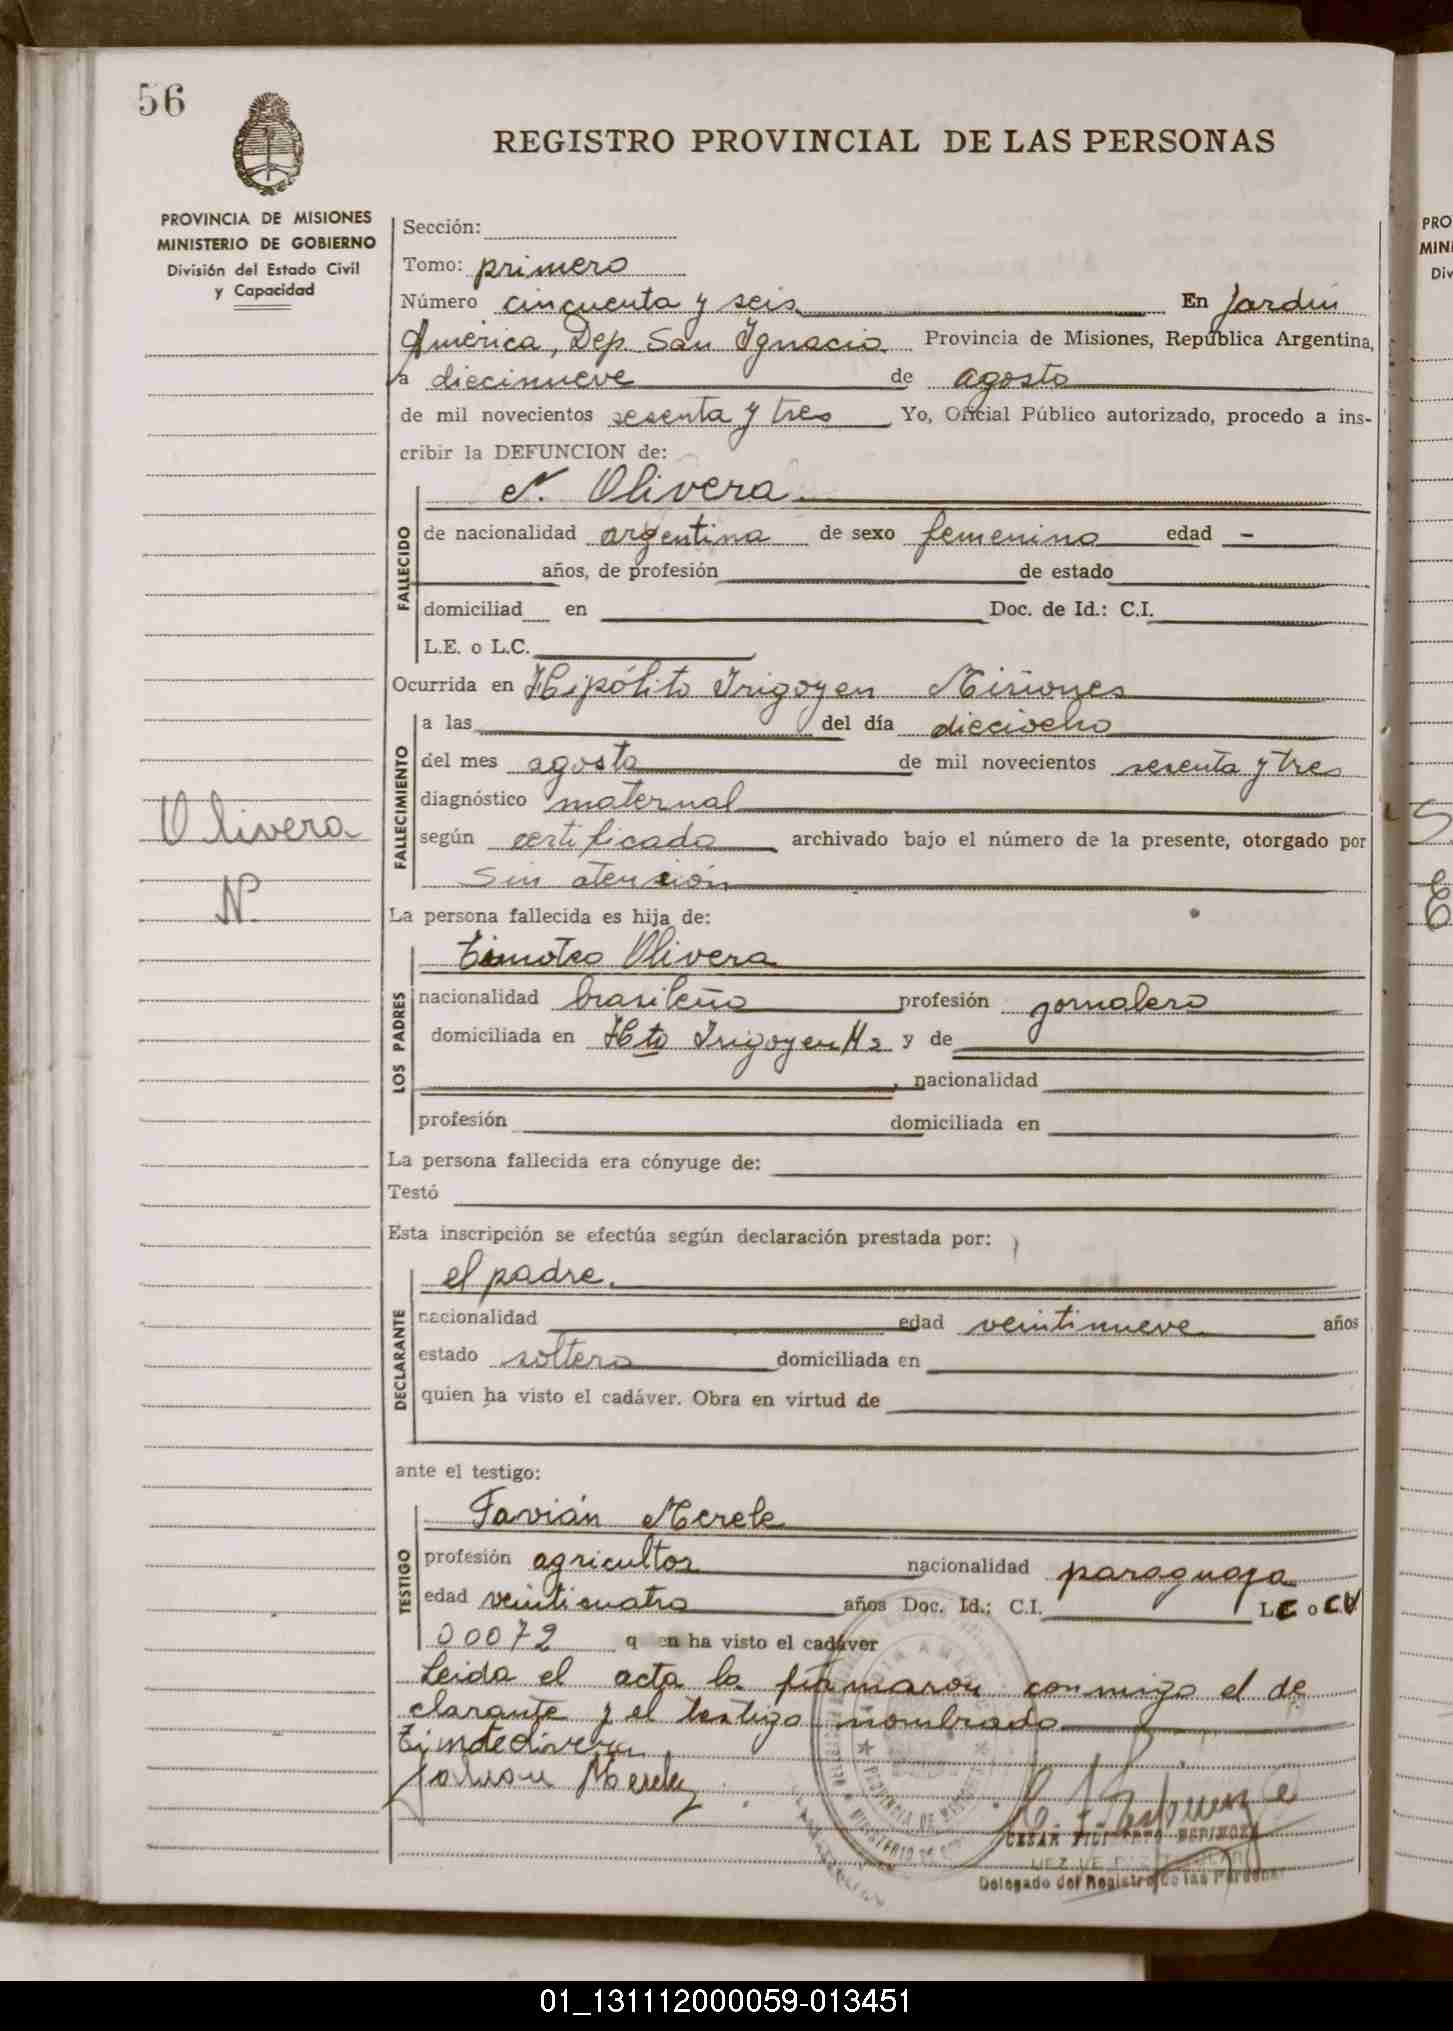 56
REGISTRO PROVINCIAL DE LAS PERSONAS
PROVINCIA DE MISIONES
MINISTERIO DE GOBIERNO
División del Estado Civil
y Capacidad
Sección:
Tomo: primero
Número cincuenta y seis En Jardín
América, Dep. San Ignacio Provincia de Misiones, República Argentina,
a diecinueve de agosto
de mil novecientos sesenta y tres Yo, Oficial Público autorizado, procedo a ins-
cribir la DEFUNCION de:
N. Olivera
FALLECIDO
de nacionalidad argentina de sexo femenino edad -
años, de profesión de estado
domiciliad en Doc. de Id.: C.I.
L.E. o L.C.
Ocurrida en Hipólito Irigoyen Misiones
FALLECIMIENTO
a las del día dieciocho
del mes agosto de mil novecientos sesenta y tres
diagnóstico maternal
según certificado archivado bajo el número de la presente, otorgado por
Sin atención
Olivera
N.
La persona fallecida es hija de:
LOS PADRES
Timoteo Olivera
nacionalidad brasileño profesión jornalero
domiciliada en Hto Irigoyen Ms y de
, nacionalidad
profesión domiciliada en
La persona fallecida era cónyuge de:
Testó
Esta inscripción se efectúa según declaración prestada por:
DECLARANTE
el padre.
nacionalidad edad veintinueve años
estado soltero domiciliada en
quien ha visto el cadáver. Obra en virtud de
ante el testigo:
TESTIGO
Favián Merele
profesión agricultor nacionalidad paraguaya
edad veinticuatro años Doc. Id.; C.I. L C o CV
00072 q en ha visto el cadáver
Leida el acta la firmaron conmigo el de
clarante y el testigo nombrado
Merele
Delegado del Registro de las Personas
PRO
MINI
Div
01_131112000059-013451